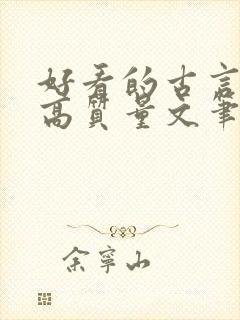 好看的古言
高质量文笔
余宁山